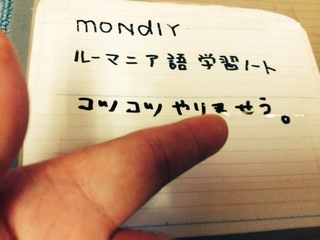 mondly
ルーマニア語学習ノート
コツコツやりませう。